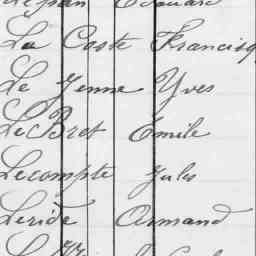 Edouard
La Coste Francisq
Le Jenne Yves
Le Bret Emile
Lecompte Jules
Leride Armand